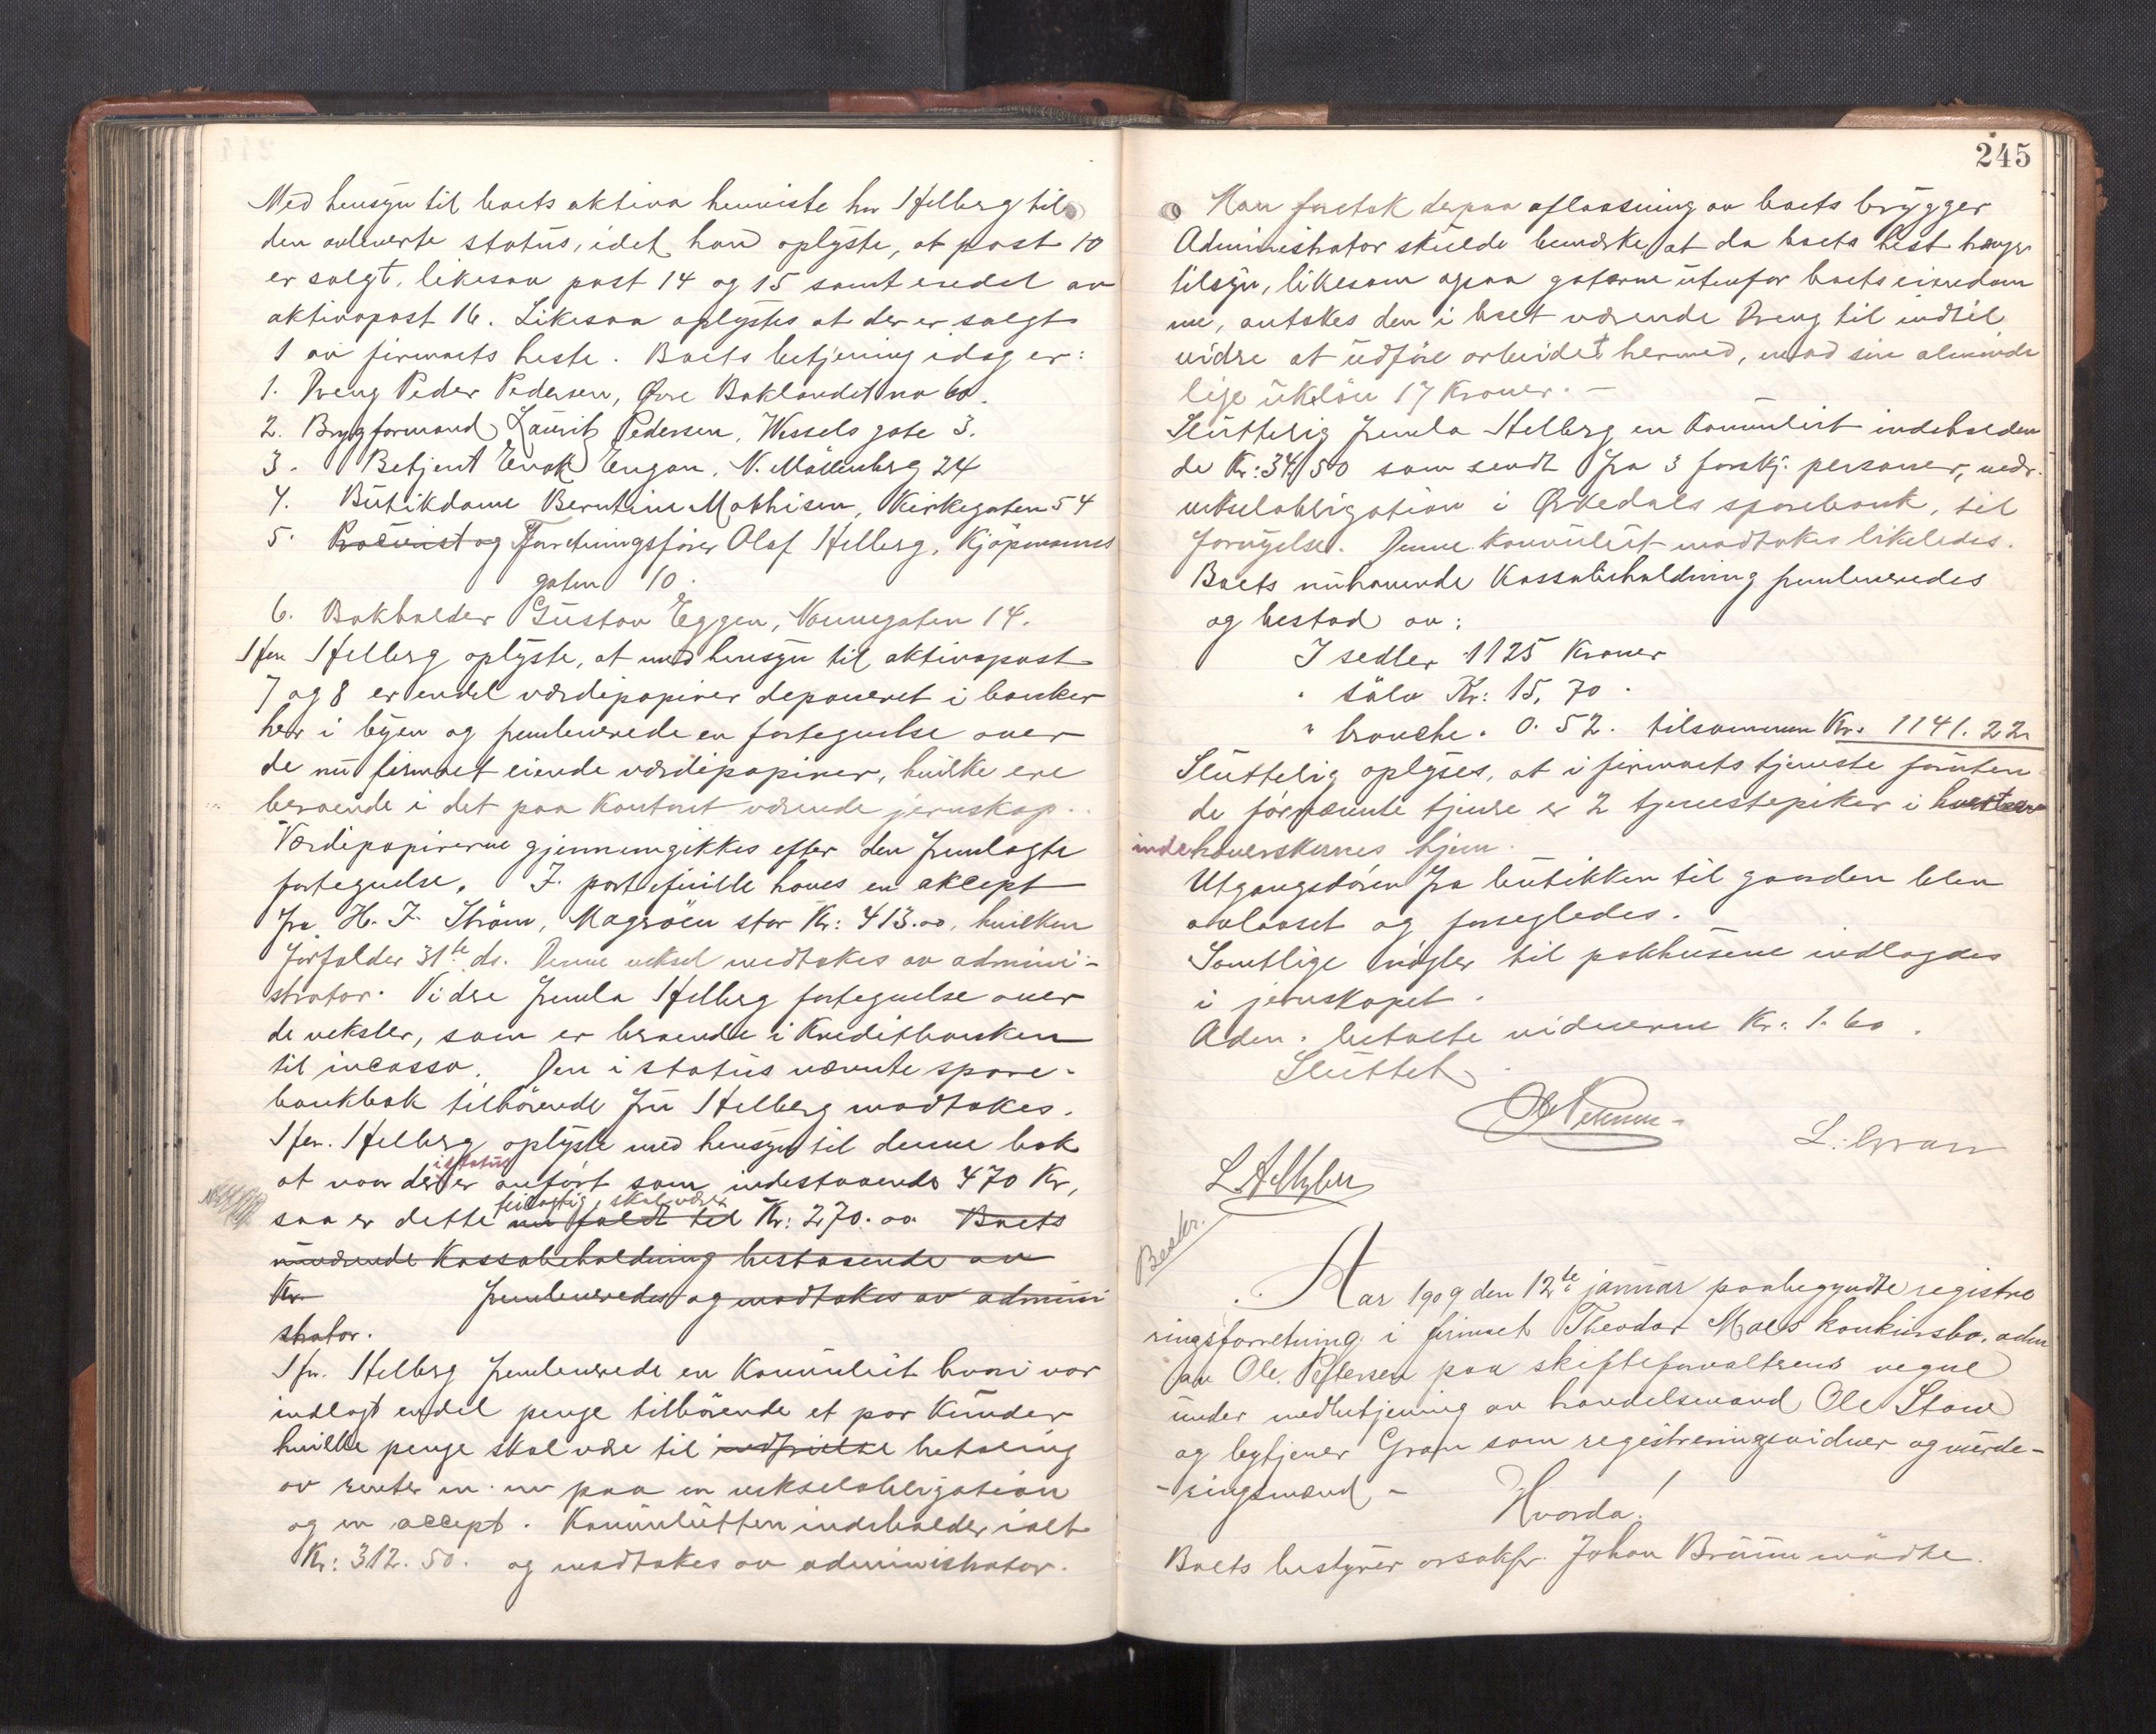 Med hensyn til boets aktiva henviste hr Helberg til
den avleverte status, idet han oplyste, at post 10
er solgt, likesaa post 14 og 15 samt endel av
aktivapost 16. Likesaa oplystes at der er solgt
1 av firmaets heste. Boets betjening idag er:
1. Dreng Peder Pedersen, Øvre Baklandet no 60.
2. Brygformand Laurits Pedersen, Wessels gate 3.
3. Betjent Enok Engan, N. Möllenberg 24
4. Butikdame Berntine Mathisen, Kirkegaten 54
5. Prokurist og Forretningsfører Olaf Helberg, Kjöpmanns
gaten 10.
6. Bokholder Gustav Eggen, Nonnegaten 14.
Hr. Helberg oplyste, at med hensyn til aktivapost
7 og 8 er endel værdipapirer deponeret i banker
her i byen og fremleverede en fortegnelse over
de nu firmaet eiende værdipapirer, hvilke ere
beroende i det paa Kontoret værende jernskap.
Værdipapirerne gjennemgikkes efter den fremlagte
fortegnelse. I portefeuille haves en aksept
fra H. J. Ström, Magröen stor Kr: 413.00, hvilken
forfalder 31te ds. Denne veksel modtokes av admini-
strator. Videre fremla Helberg fortegnelse over
de veksler, som er beroende i Kreditbanken
til incasso. Den i status nævnte spare-
bankbok tilhörende fru Helberg modtokes.
Hr. Helberg oplyste med hensyn til denne bok
i status
at naar der er anfört som indestaaende 470 Kr,
feilagtig, skal være
saa er dette nu faldt til Kr: 270.00 Boets
nuværende Kassabeholdning bestaaende av
Kr fremleveredes og modtokes av admini
strator.
Hr. Helberg fremleverede en Konvolut hvori var
indlagt endel penge tilhörende et par Kunder
hvilke penge skal være til indfrielse betaling
av renter m. m. paa en vekselobligation
og en accept. Konvolutten indeholder ialt
Kr: 312.50. og modtokes av administrator.
245
Man foretok derpaa aflaasning av boets brygger
Administrator skulde bemerke, at da boets hest trenger
tilsyn, likesom ogsaa gaterne utenfor boets eiendom
me, antokes den i boet værende Dreng til indtil
videre at udføre arbeidet hermed, mod sin alminde
lige uklön 17 Kroner. -
Sluttelig fremla Helberg en Konvolut indeholden
de Kr: 34.50 som sendt fra 3 forskj. personer, vedr.
vekselobligation i Orkedals sparebank, til
fornyelse. Denne Konvolut modtokes likeledes.
Boets nuhavende Kassabeholdning fremleveredes
og bestod av:
I sedler 1125 Kroner
" sölv Kr: 15, 70.
" bronche. 0. 52. tilsammen Kr. 1141. 22
Sluttelig oplyses, at i firmaets tjeneste foruten
de fornævnte tjenere er 2 tjenestepiker i
indehaverskernes hjem.
Utgangsdören fra butikken til gaarden blev
avlaaset og forsegledes.
Samtlige nögler til pakhusene indlagdes
i jernskapet.
Adm. betalte vidnerne Kr: 1.60.
Sluttet
L. Gran
Beskr.
Aar 1909 den 12te januar paabegyndte registre
ringsforretning i firmaet Theodor Moe's konkursbo. adm
av Ole Petersen paa skifteforvalterens vegne
under medbetjening av handelsmand Ole Stav
og bytjener Gran som registreringsvidner og vurde-
- ringsmænd -
Hvorda!
Boets bestyrer orsakfr. Johan Bruun mödte.